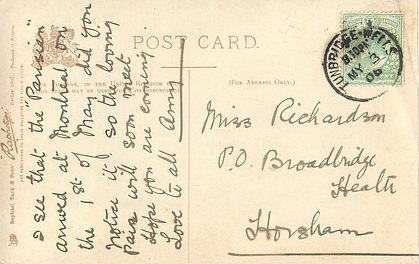 POST CARD.
(FOR ADDRESS ONLY.)
TUNBRIDGE-WELLS
MY 3
06
I see that the Parisian
arrived at Montreal on
the 1st of May did you
notice it so the loving
Pair will soon meet
Hope you are coming
Love to all Amy
Miss Richardson
P.O. Broadbridge
Heath
Horsham
Raphael Tuck & Sons'